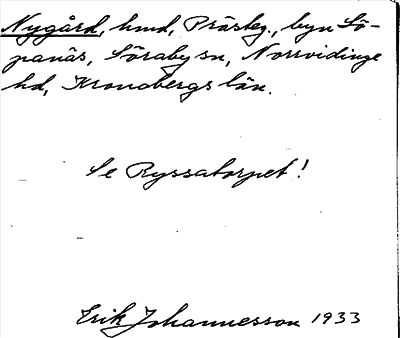 Nygård, hmd, Prästeg., byn Sö-
panäs, Sörabysn, Norrvidinge
hd, Kronobergs län.
Se Ryssatorpet!
Erik Johannesson 1933